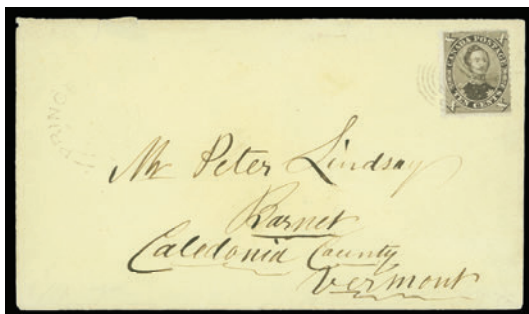 CANADA POSTAGE
TEN CENTS
PRINC
Mr Peter Lindsay
Barnet
Caledonia County
Vermont